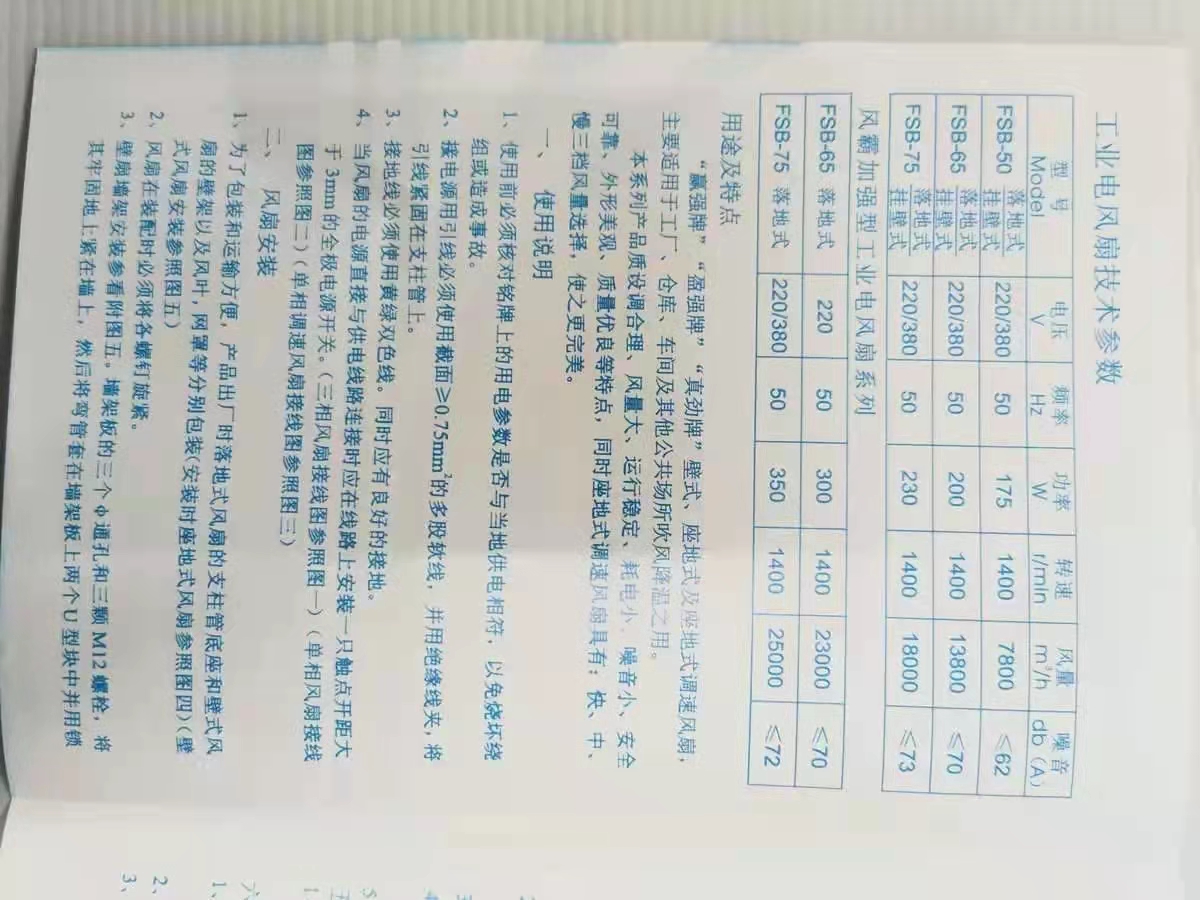 工业电风扇技术参数
型号 电压 频率 功率 转速 风量 噪音
Model V Hz W r/min m³/h db(A)
FSB-50 落地式 挂壁式 220/380 50 175 1400 7800 ≤62
FSB-65 落地式 挂壁式 220/380 50 200 1400 13800 ≤70
FSB-75 落地式 挂壁式 220/380 50 230 1400 18000 ≤73
风霸加强型工业电风扇系列
FSB-65 落地式 220 50 300 1400 23000 ≤70
FSB-75 落地式 220/380 50 350 1400 25000 ≤72
用途及特点
“赢强牌”“盈强牌”“真劲牌”壁式、座地式及座地式调速风扇，
主要适用于工厂、仓库、车间及其他公共场所吹风降温之用。
本系列产品质设调合理、风量大、运行稳定、耗电小、噪音小、安全
可靠、外形美观、质量优良等特点，同时座地式调速风扇具有：快、中、
慢三档风量选择，使之更完美。
一、 使用说明
1、使用前必须核对铭牌上的用电参数是否与当地供电相符，以免烧坏绕
组或造成事故。
2、接电源用引线必须使用截面≥0.75mm²的多股软线，并用绝缘线夹，将
引线紧固在支柱管上。
3、接地线必须使用黄绿双色线。同时应有良好的接地。
4、当风扇的电源直接与供电线路连接时应在线路上安装一只触点开距大
于3mm的全极电源开关。（三相风扇接线图参照图一）（单相风扇接线
图参照图二）（单相调速风扇接线图参照图三）
二、 风扇安装
1、为了包装和运输方便，产品出厂时落地式风扇的支柱管底座和壁式风
扇的壁架以及风叶，网罩等分别包装(安装时座地式风扇参照图四)(壁
式风扇安装参照图五)
2、风扇在装配时必须将各螺钉旋紧。
3、壁扇墙架安装参看附图五。墙架板的三个φ通孔和三颗M12螺栓，将
其牢固地上紧在墙上，然后将弯管套在墙架板上两个U型块中并用锁